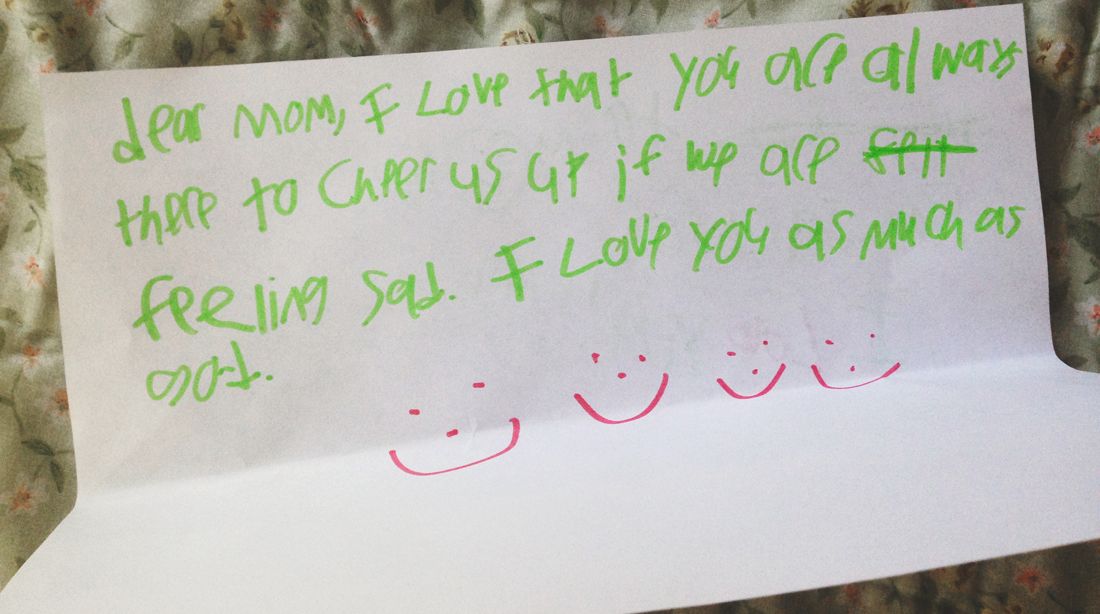 dear mom, I Love that you are always
there to cheer us up if we are
feeling sad. I Love you as much as